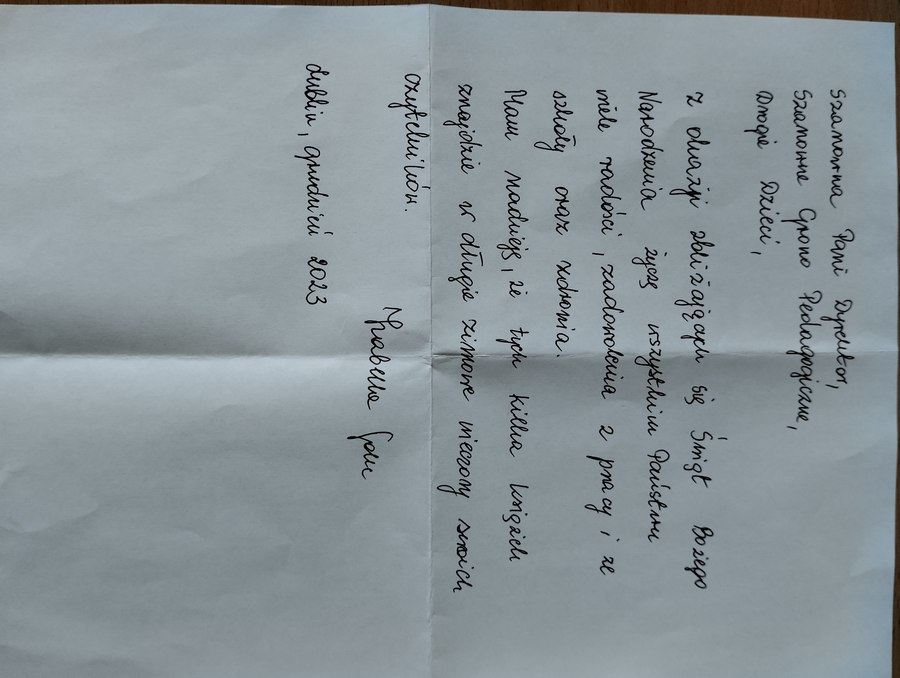 Szanowna Pani Dyrektor,
Szanowne Grono Pedagogiczne,
Drogie Dzieci,
z okazji zbliżających się Świąt Bożego
Narodzenia życzę wszystkim Państwu
wiele radości, zadowolenia z pracy i ze
szkoły oraz zdrowia.
Mam nadzieję, że tych kilka książek
znajdzie w długie zimowe wieczory swoich
czytelników.
Izabella
Lublin, grudzień 2023